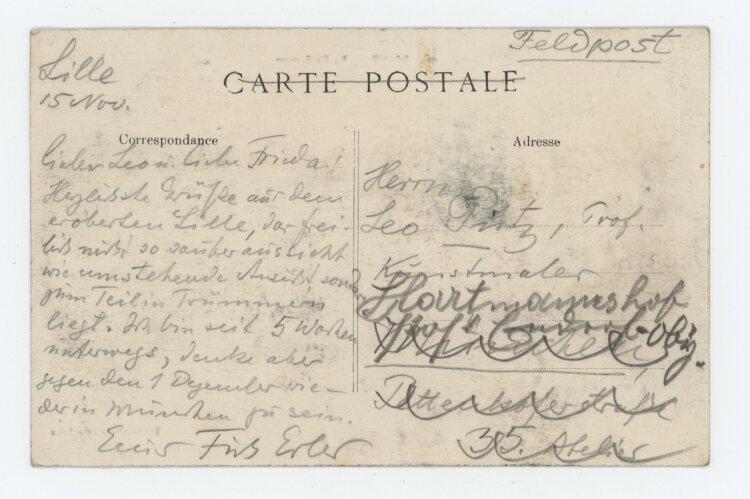 Feldpost
Lille
15 Nov.
CARTE POSTALE
Correspondance
Adresse
Lieber Leo u. liebe Frieda!
Herzlichste Grüße aus dem
eroberten Lille, das frei-
lich nicht so sauber aussieht
wie umstehende Ansicht sondern
zum Teil in Trümmern
liegt. Ich bin seit 5 Wochen
unterwegs, denke aber
gegen den 1 Dezember wie-
der in München zu sein.
Euer Fritz Erler
Herrn
Leo Putz, Prof.
Kunstmaler
Hartmannshof
Post
München,
Pettenkoferstraße
35. Atelier